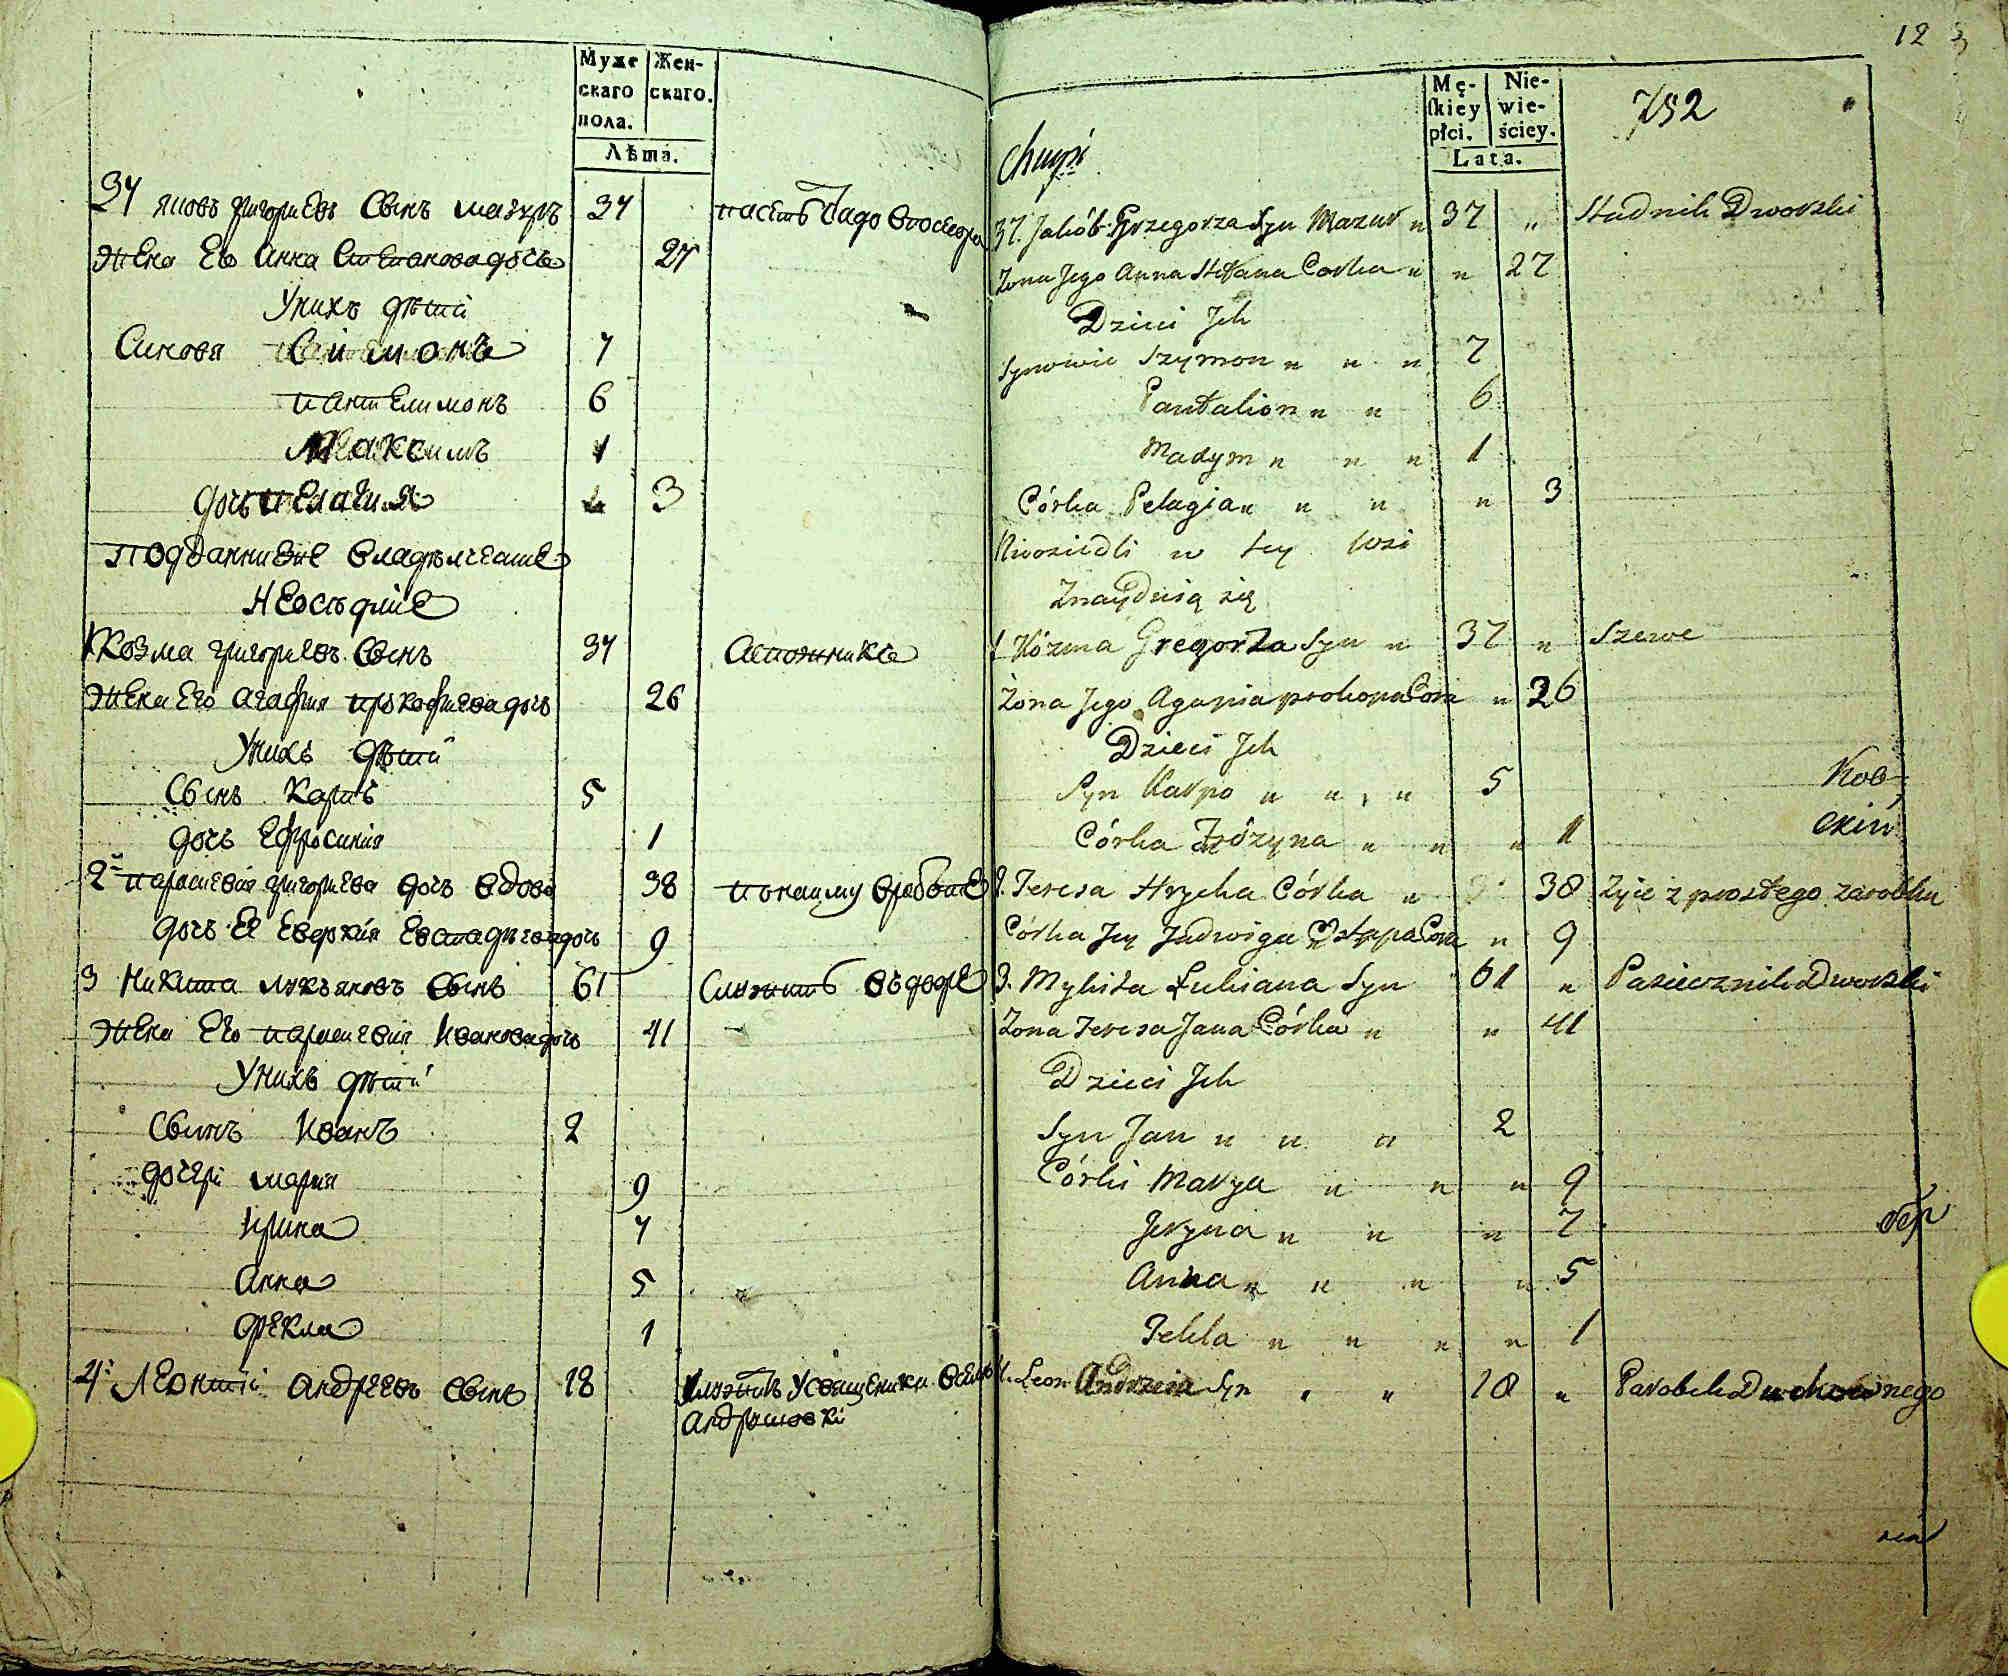 Муже Жен-
скаго скаго.
пола.
Лѣта.
37 яковъ григориевъ Сынъ мазуръ 37 пасетъ Стадо
жена Его Анна Степановадочь 27
Унихъ дѣти
Синовя Симонъ 7
пантелимонъ 6
Максимъ 1
дочь пелагия 3
подданние владѣлческие
Неосѣдлие
1 Козма григориевъ Сынъ 37 Сапожникъ
жена Его агафия прокофиевадочь 26
Унихъ дѣти
Сынъ Карпъ 5
дочь Ефросиния 1
2 параскевия григориева дочь вдова 38
дочь Ее Евдокия дочь 9
3 Никита лукъяновъ Сынъ 61 Служитъ въдворе
жена Его параскевия Ивановадочь 41
Унихъ дѣти
Сынъ Иванъ 2
дочери мария 9
Ирина 7
Анна 5
фекла 1
4 Леонтий андреевъ сынъ 18 служитъ Усвященика
123
Mę- Nie-
skiey wie-
płci. ściey.
Lata.
752
37. Jakób Grzegorza Syn Mazur " 37 " Studnik Dworski
Zona Jego Anna Stefana Corka " " 27
Dzieci Jch
Synowie Szymon " " " 7
Pantalion " " 6
Maxym " " " 1
Córka Pelagia " " " " 3
Nieosiedli w tey Wsi
Znaydują się
1 Kózma Gregorza Syn " 37 " Szewc
Żona Jego Agapia prokopa Cora " 26
Dzieci Jch
Syn Karpo " " " 5
Córka " " " 1
2. Teresa Hrycka Córka " 38 Zyie z prostego zarobku
Córka Jey Jadwiga Ostapa Cora " 9
3. Mykita Łukiana Syn 61 " Pasiecznik Dworski
Zona Teresa Jana Córka " " 41
Dzieci Jch
Syn Jan " " " 2
Córki Marya " " " 9
Jeryna " " " 7
Anna " " " " 5
Tekla " " " " 1
4. Leon Andrzeia Syn " " 18 " Parobek Duchownego